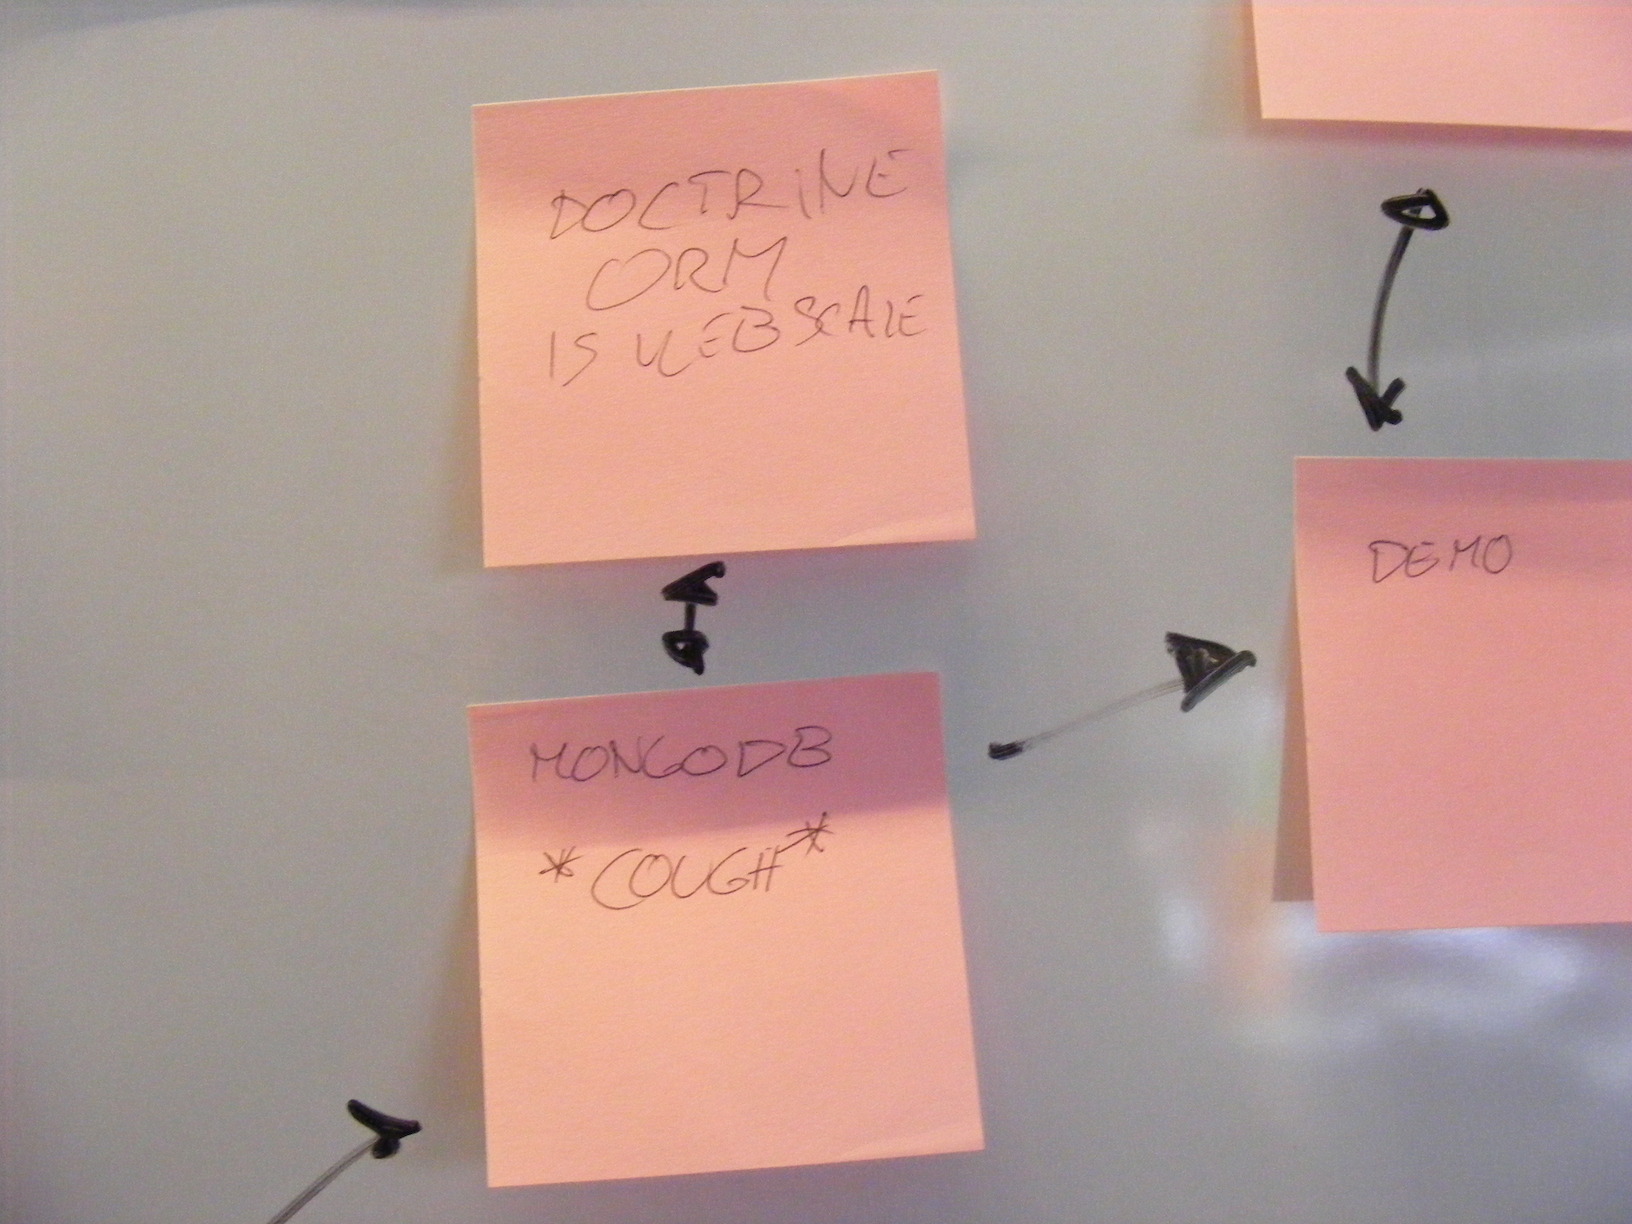 DOCTRINE
ORM
IS WEBSCALE
MONGODB
*COUGH*
DEMO